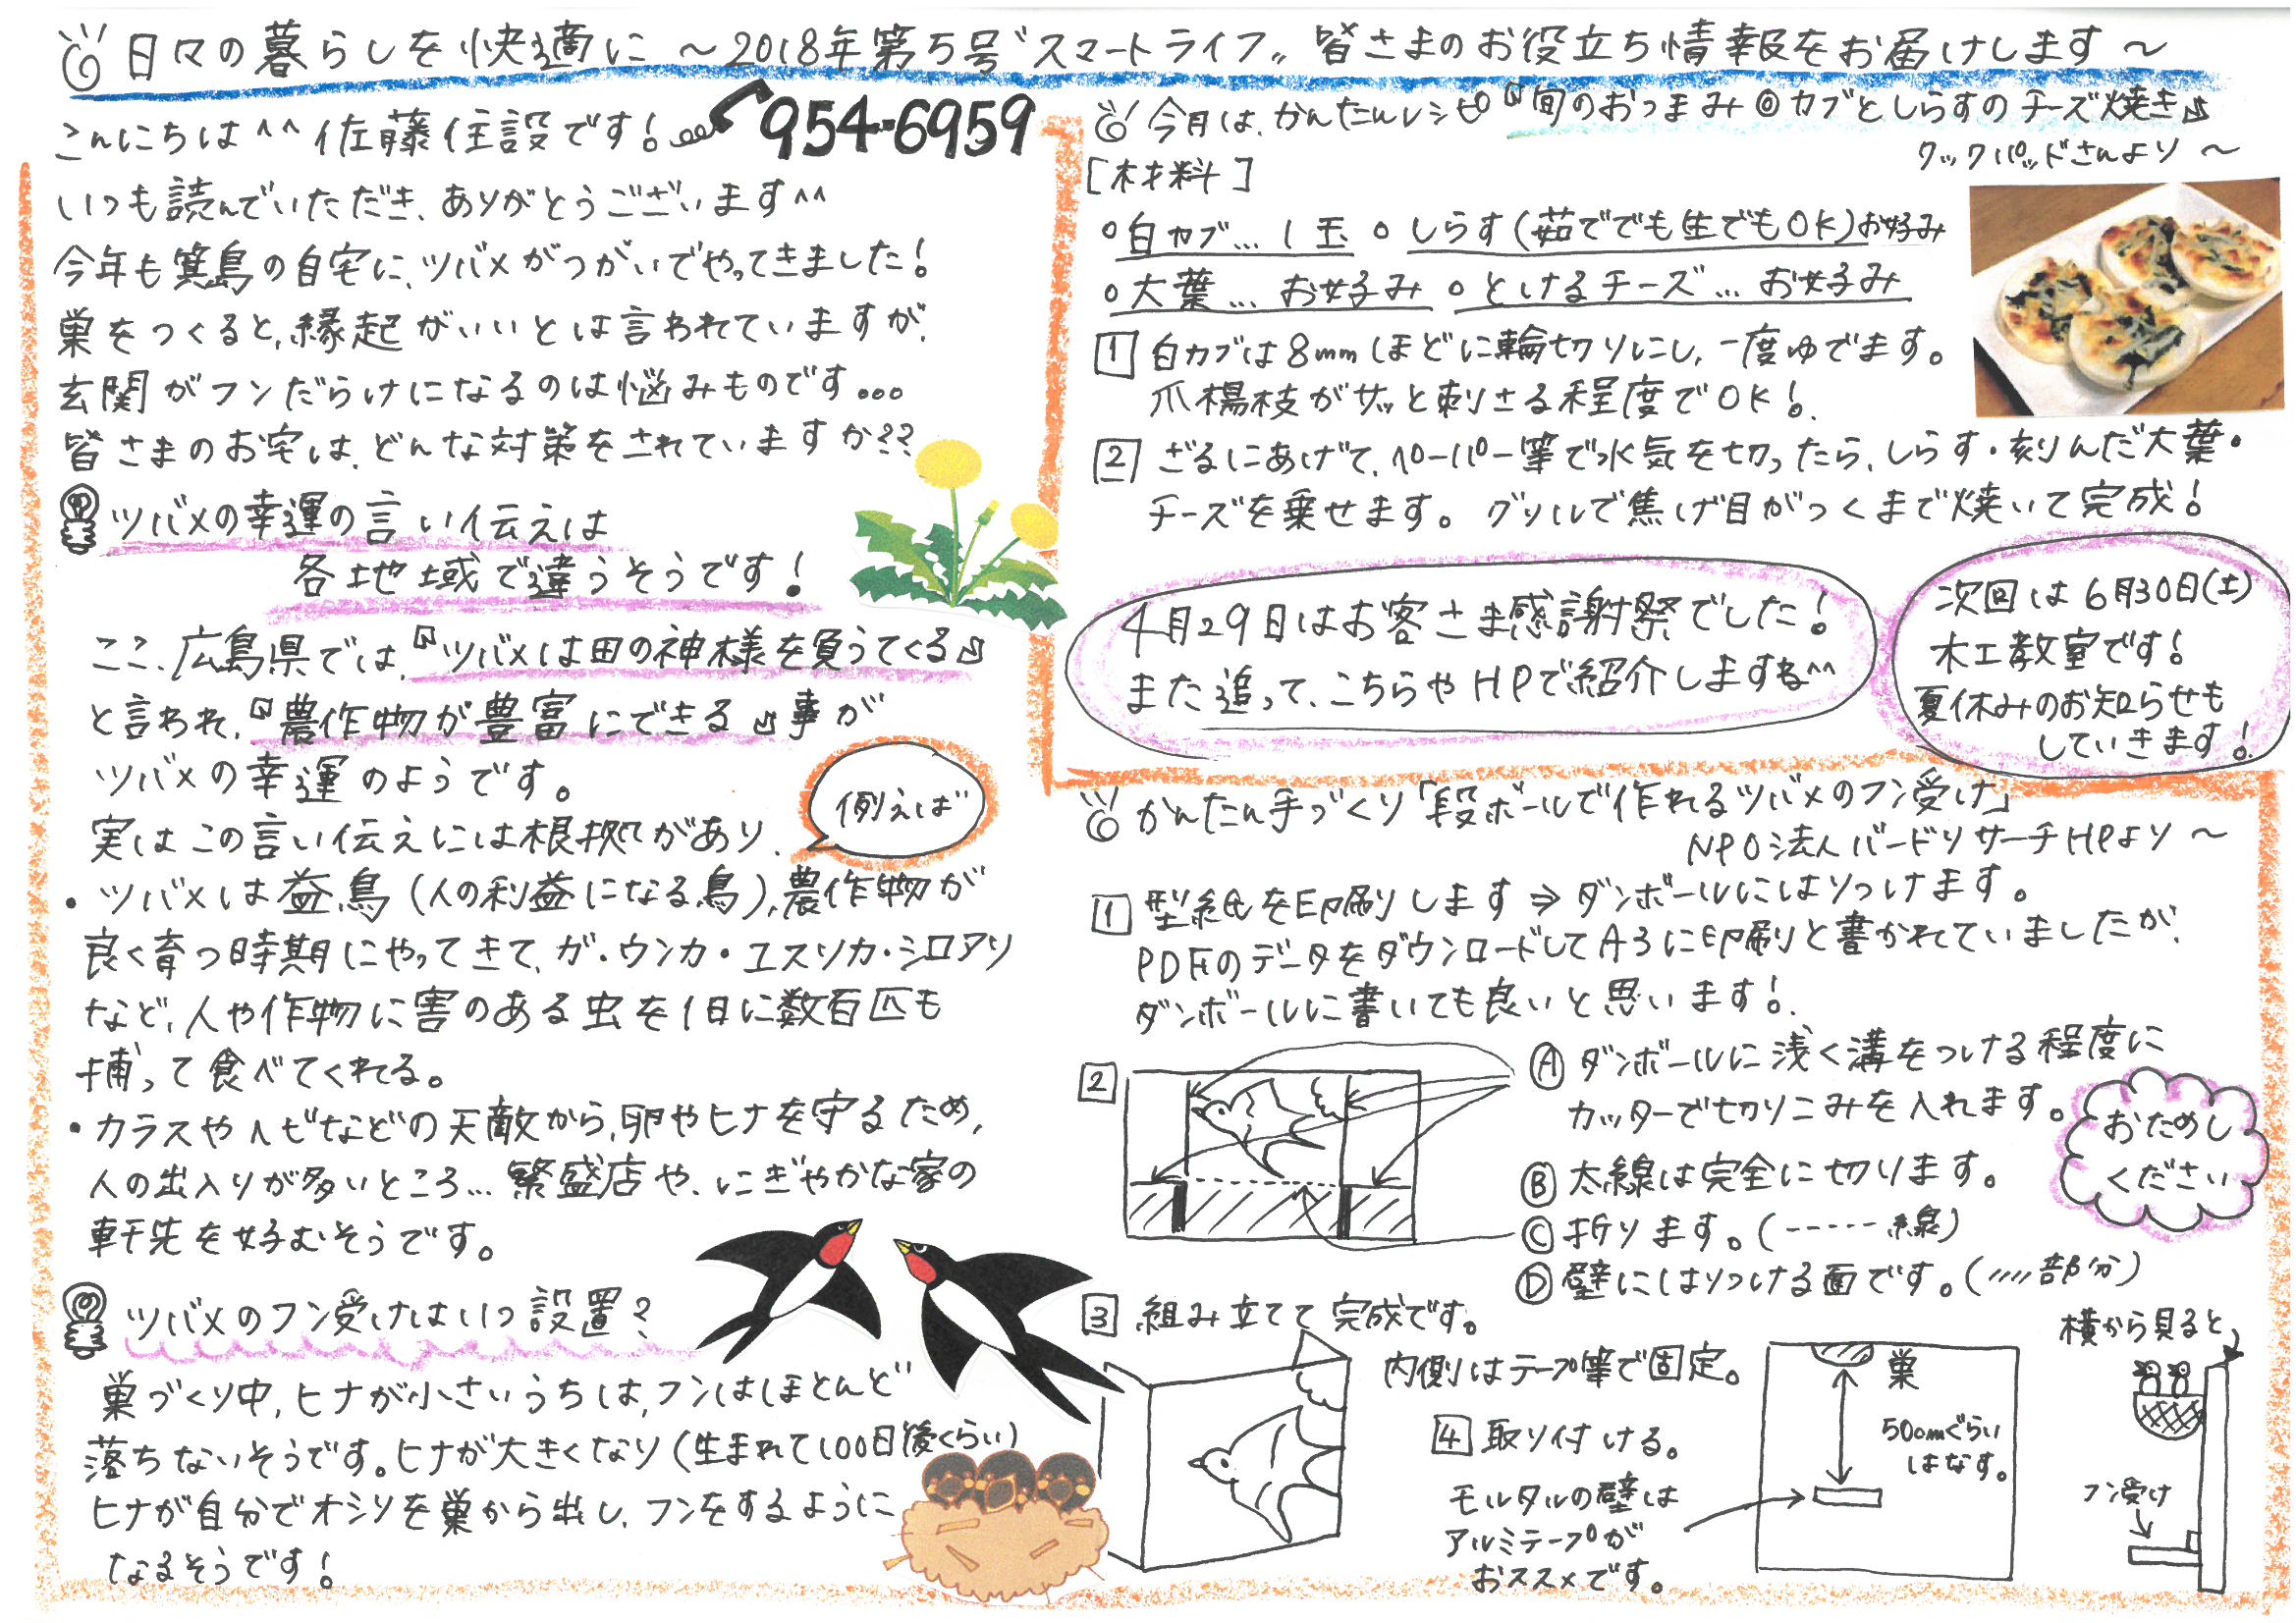 日々の暮らしを快適に ～2018年第5号〝スマートライフ〟皆さまのお役立ち情報をお届けします～
こんにちは^^佐藤住設です!
954-6959
いつも読んでいただき、ありがとうございます^^
今年も箕島の自宅に、ツバメがつがいでやってきました!
巣をつくると、縁起がいいとは言われていますが、
玄関がフンだらけになるのは悩みものです...
皆さまのお宅は、どんな対策をされていますか??
ツバメの幸運の言い伝えは
各地域で違うそうです!
ここ、広島県では、『ツバメは田の神様を負うてくる』
と言われ、『農作物が豊富にできる』事が
ツバメの幸運のようです。
実はこの言い伝えには根拠があり、
例えば
・ツバメは益鳥(人の利益になる鳥)、農作物が
良く育つ時期にやってきて、ガ・ウンカ・ユスリカ・シロアリ
など、人や作物に害のある虫を1日に数百匹も
捕って食べてくれる。
・カラスやヘビなどの天敵から、卵やヒナを守るため、
人の出入りが多いところ…繁盛店や、にぎやかな家の
軒先を好むそうです。
ツバメのフン受けはいつ設置?
巣づくり中、ヒナが小さいうちは、フンはほとんど
落ちないそうです。ヒナが大きくなり(生まれて100日後くらい)
ヒナが自分でオシリを巣から出し、フンをするように
なるそうです!
今月は、かんたんレシピ『旬のおつまみ◎カブとしらすのチーズ焼き』
クックパッドさんより～
[材料]
○白カブ…1玉 ○しらす(茹ででも生でもOK)お好み
○大葉…お好み ○とけるチーズ…お好み
1 白カブは8mmほどに輪切りにし、一度ゆでます。
爪楊枝がサッと刺さる程度でOK!
2 ざるにあげて、ペーパー等で水気を切ったら、しらす・刻んだ大葉・
チーズを乗せます。グリルで焦げ目がつくまで焼いて完成!
4月29日はお客さま感謝祭でした!
また追って、こちらやHPで紹介しますね^^
次回は6月30日(土)
木工教室です!
夏休みのお知らせも
していきます!
かんたん手づくり「段ボールで作れるツバメのフン受け」
NPO法人バードリサーチHPより～
1 型紙を印刷します⇒ダンボールにはりつけます。
PDFのデータをダウンロードしてA3に印刷と書かれていましたが、
ダンボールに書いても良いと思います!
2
Ⓐ ダンボールに浅く溝をつける程度に
カッターで切りこみを入れます。
Ⓑ 太線は完全に切ります。
Ⓒ 折ります。(-----線)
Ⓓ 壁にはりつける面です。(////部分)
おためし
ください
3 組み立てて完成です。
内側はテープ等で固定。
4 取り付ける。
モルタルの壁は
アルミテープが
おススメです。
巣
50cmぐらい
はなす。
横から見ると
フン受け